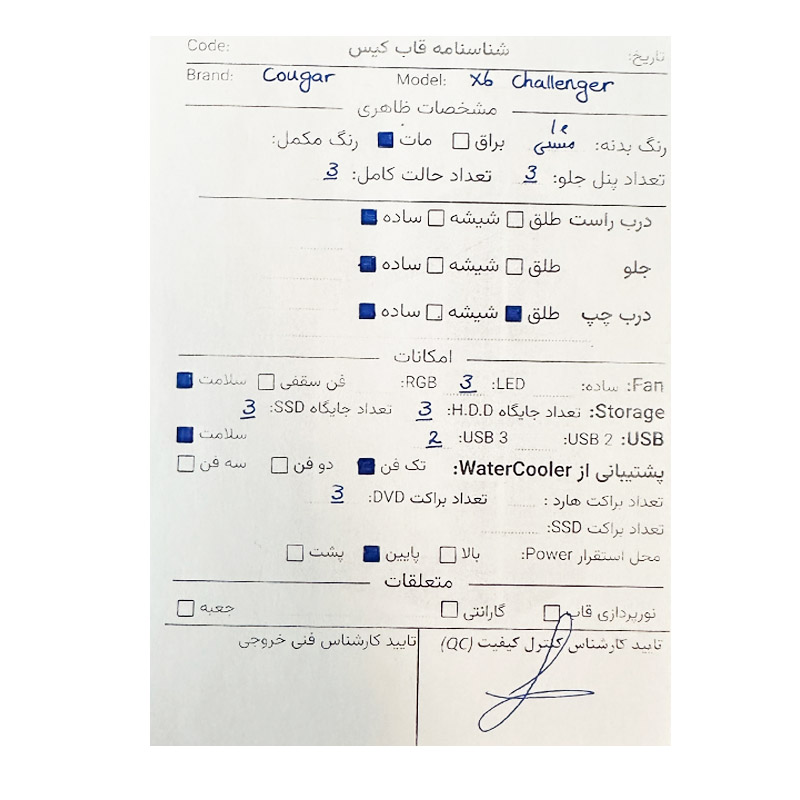 شناسنامه قاب کیس Code:
تاریخ:
Brand: Cougar Model: X6 Challenger
مشخصات ظاهری
رنگ بدنه: مشکی براق مات رنگ مکمل:
تعداد پنل جلو: 3 تعداد حالت کامل: 3
درب راست طلق شیشه ساده
جلو طلق شیشه ساده
درب چپ طلق شیشه ساده
امکانات
Fan: ساده: LED: 3 RGB: فن سقفی سلامت
Storage: تعداد جایگاه H.D.D: 3 تعداد جایگاه SSD: 3
USB: USB 2: USB 3: 2 سلامت
پشتیبانی از WaterCooler: تک فن دو فن سه فن
تعداد براکت هارد : تعداد براکت DVD: 3
تعداد براکت SSD:
محل استقرار Power: بالا پایین پشت
متعلقات
نورپردازی قاب گارانتی جعبه
تایید کارشناس کنترل کیفیت (QC) تایید کارشناس فنی خروجی